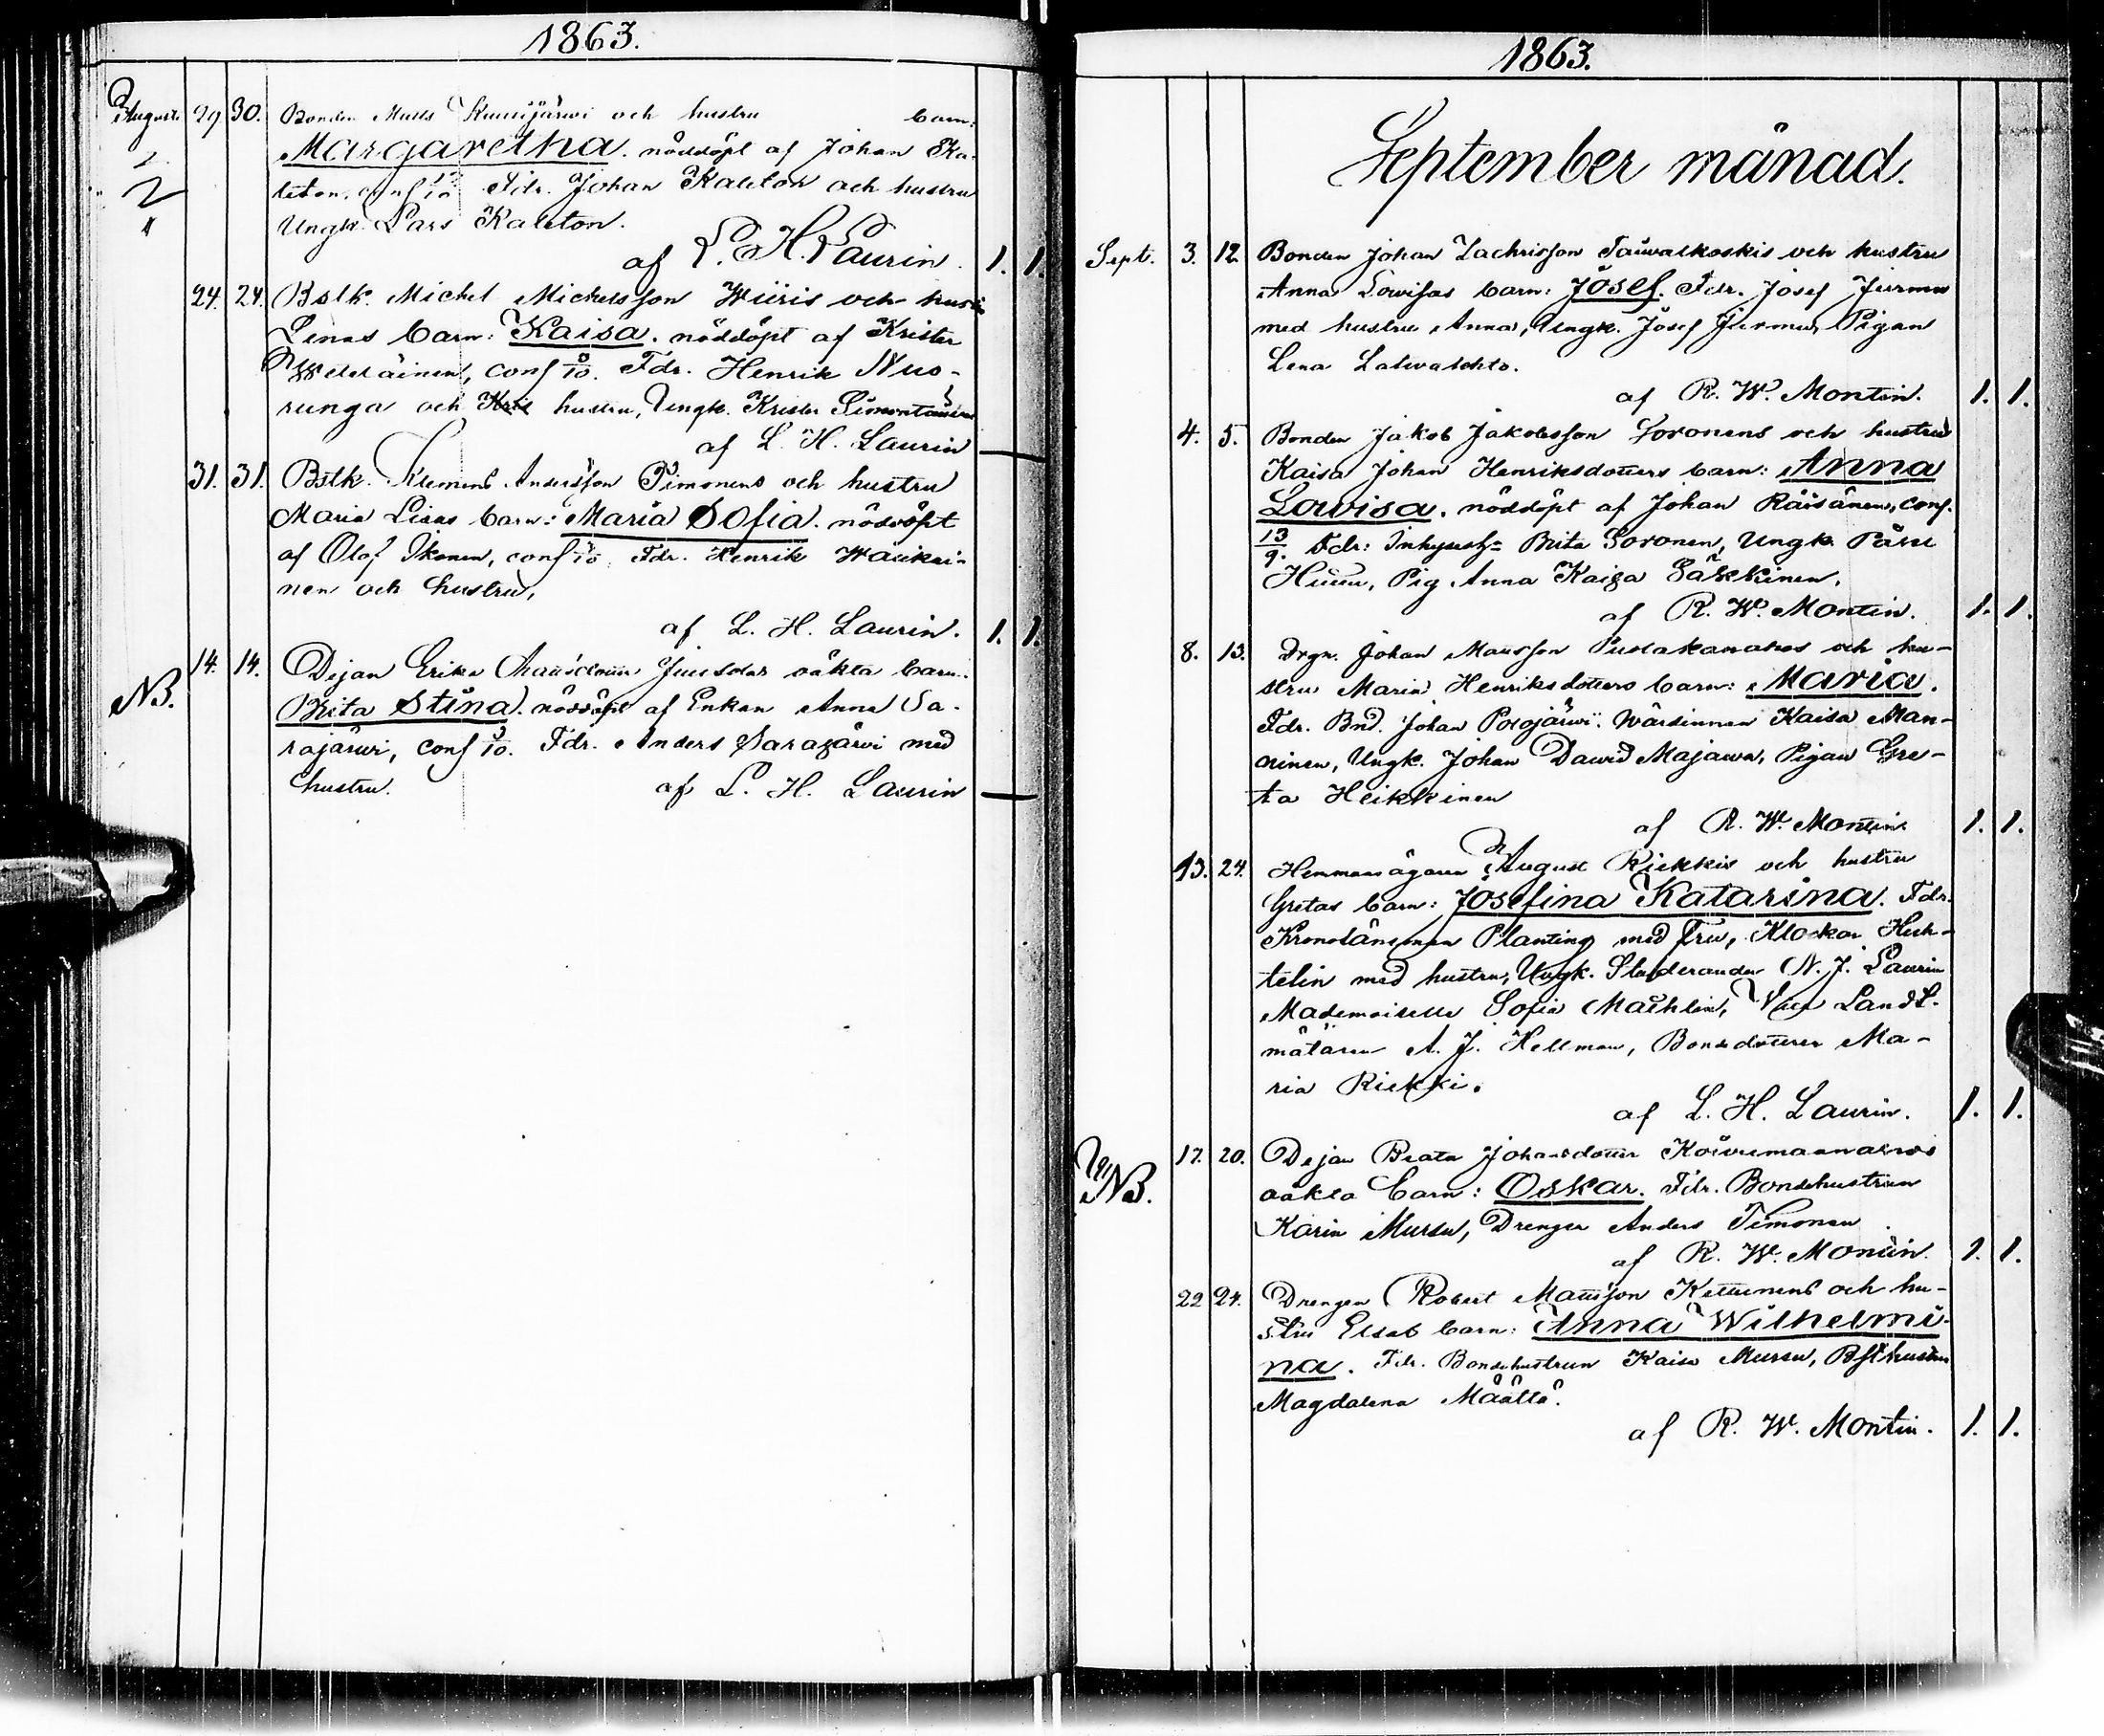 1863.
August 29 30. Bonden Matts Kuusijärwi och hustru barn:
Margaretha. nöddöpt af Johan Ka-
leton, conf Fdr. Johan Kaleton och hustru
Ungk. Lars Kaleton.
af L. H. Laurin. 1. 1.
24. 24. Bslk. Michel Michelsson Wiiris och hustru
Lenas barn: Kaisa. nöddöpt af Krister
conf Fdr. Henrik Nuo-
runga och hustru, Ungk. Krister
af L. H. Laurin —
31. 31. Bslk. Klemens Andersson Timonens och hustru
Maria Lisas barn: Maria Sofia. nöddöpt
af Olof Ikonen, conf Fdr. Henrik Waikai-
nen och hustru,
af L. H. Laurin. 1. 1.
NB. 14. 14. Dejan Erika oäkta barn:
Brita Stina. nöddöpt af Enkan Anna Sa-
rajärwi, conf Fdr. Anders Sarajärwi med
hustru. af L. H. Laurin —
1863.
September månad.
Sept. 3. 12. Bonden Johan Zachrisson Taiwalkoskis och hustru
Anna Lowisas barn: Josef. Fdr. Josef Jurmu
med hustru Anna, Ungk. Josef Jurmu, Pigan
Lena Latwalehto.
af R. W. Montin. 1. 1.
4. 5. Bonden Jakob Jakobsson Soronens och hustru
Kaisa Johan Henriksdotters barn: Anna
Lowisa. nöddöpt af Johan Räisänen, conf.
13/9. Fdr: Brita Soronen, Ungk.
Pig. Anna Kaisa Säkkinen.
af R. W. Montin. 1. 1.
8. 13. Drgn. Johan Matsson och hu-
stru Maria Henriksdotters barn: Maria.
Fdr. Bnd. Johan Posojärwi. Wärdinnan Kaisa Man-
ninen, Ungk. Johan Dawid Majawa, Pigan Gre-
ta Heikkinen
af R. W. Montin 1. 1.
13. 24. Hemmansägaren August Riekkis och hustru
Gretas barn: Josefina Katarina. Fdr.
Kronolänsman Planting med Fru, Klockar Heik-
telin med hustru, Ungk. Studeranden N. J. Laurin
Mademoiselle Sofia Vice Landt-
mätaren A. J. Hellman, Bondedotteren Ma-
ria Riekki.
af L. H. Laurin. 1. 1.
NB. 17. 20. Dejan Beata Johansdotter
oäkta barn: Oskar. Fdr. Bondehustrun
Karin Mursu, Drengen Anders Timonen
af R. W. Montin. 1. 1.
22 24. Drengen Robert Mattsson Kettunens och hu-
stru Elsas barn: Anna Wilhelmi-
na. Fdr. Bondehustrun Kaisa Mursu, Bslhustru
Magdalena Määttä.
af R. W. Montin. 1. 1.